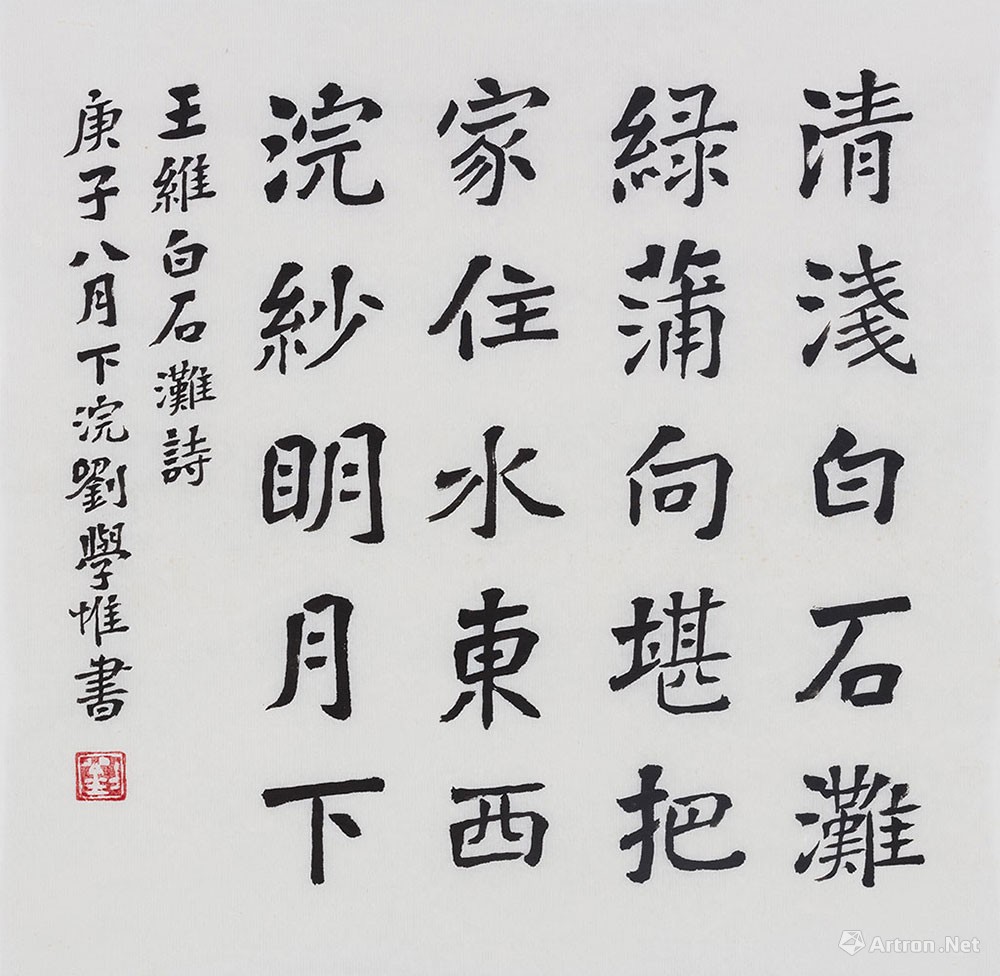 清淺白石灘
緑蒲向堪把
家住水東西
浣紗明月下
王維白石灘詩
庚子八月下浣劉學惟書
Artron.Net